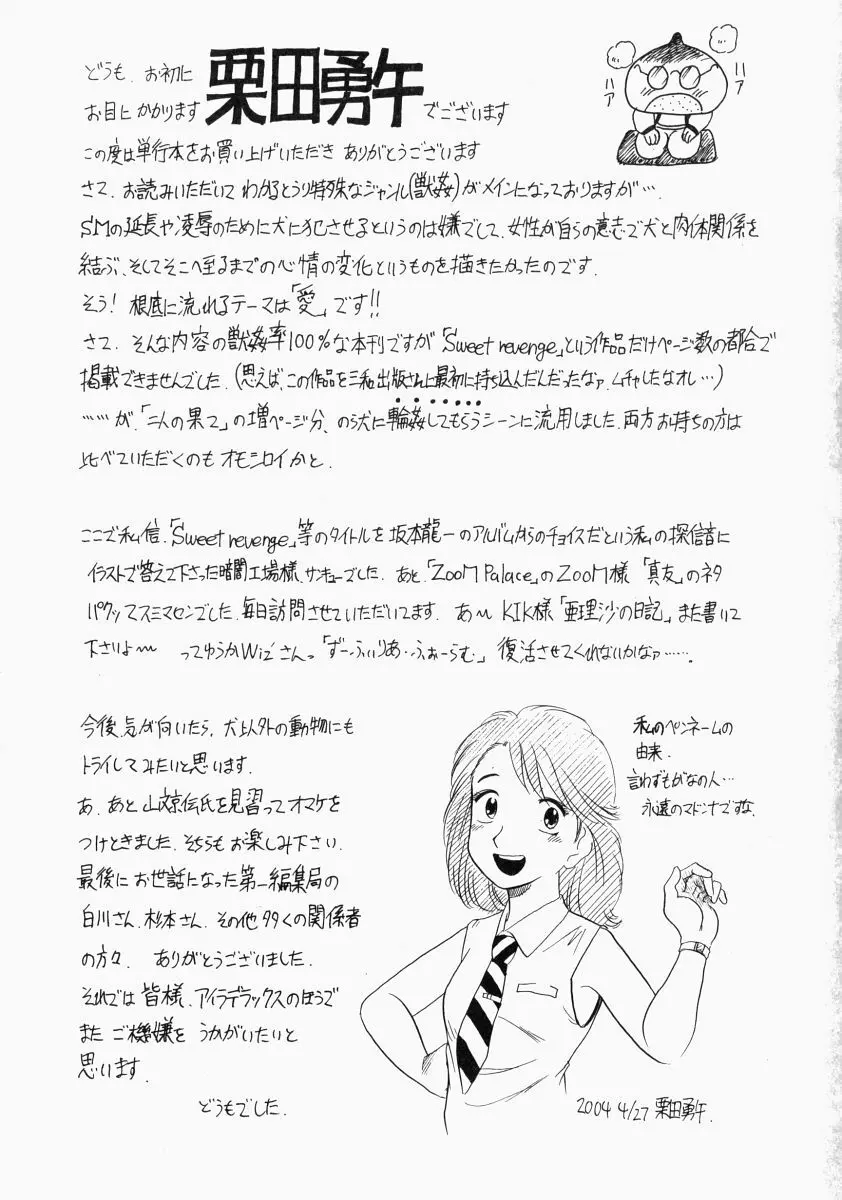 どうも、お初に
お目にかかります 栗田勇午 でございます
ハア
ハア
この度は単行本をお買い上げいただき ありがとうございます
さて、お読みいただいて わかるとうり特殊なジャンル(獣姦)がメインになっておりますが…、
SMの延長や凌辱のために犬に犯させるというのは嫌でして、女性が自らの意志で犬と肉体関係を
結ぶ、そしてそこへ至るまでの心情の変化というものを描きたかったのです.
そう! 根底に流れるテーマは「愛」です!!
さて、そんな内容の獣姦率100%な本刊ですが「Sweet revenge」という作品だけページ数の都合で
掲載できませんでした.(思えば、この作品を三和出版さんに最初に持ち込んだんだったなァ.ムチャしたなオレ…)
……が、「二人の果て」の増ページ分、のら犬に輪姦してもらうシーンに流用しました.両方お持ちの方は
比べていただくのも オモシロイかと.
ここで私信.「Sweet revenge」等のタイトルを坂本龍一のアルバムからのチョイスだという私の探信音に
イラストで答えて下さった暗闇工場様、サンキューでした. あと「ZooM Palace」のZooM様 「真友」のネタ
パクッてスミマセンでした.毎日訪問させていただいてます. あ〜 KIK様「亜理沙の日記」また書いて
下さいよ〜 ってゆうかWiz'さんっ「ずーふぃりあ・ふぉーらむ」復活させてくれないかなァ…….
今後、気が向いたら、犬以外の動物にも
トライしてみたいと思います.
あ、あと 山文京伝氏を見習って オマケを
つけときました. そちらも お楽しみ下さい.
最後に お世話になった第一編集局の
白川さん、杉本さん、その他 多くの関係者
の方々、 ありがとうございました.
それでは 皆様、アイラデラックスのほうで
また ご機嫌を うかがいたいと
思います.
どうもでした.
私のペンネームの
由来.
言わずもがなの人…
永遠のマドンナですな.
2004 4/27 栗田勇午.